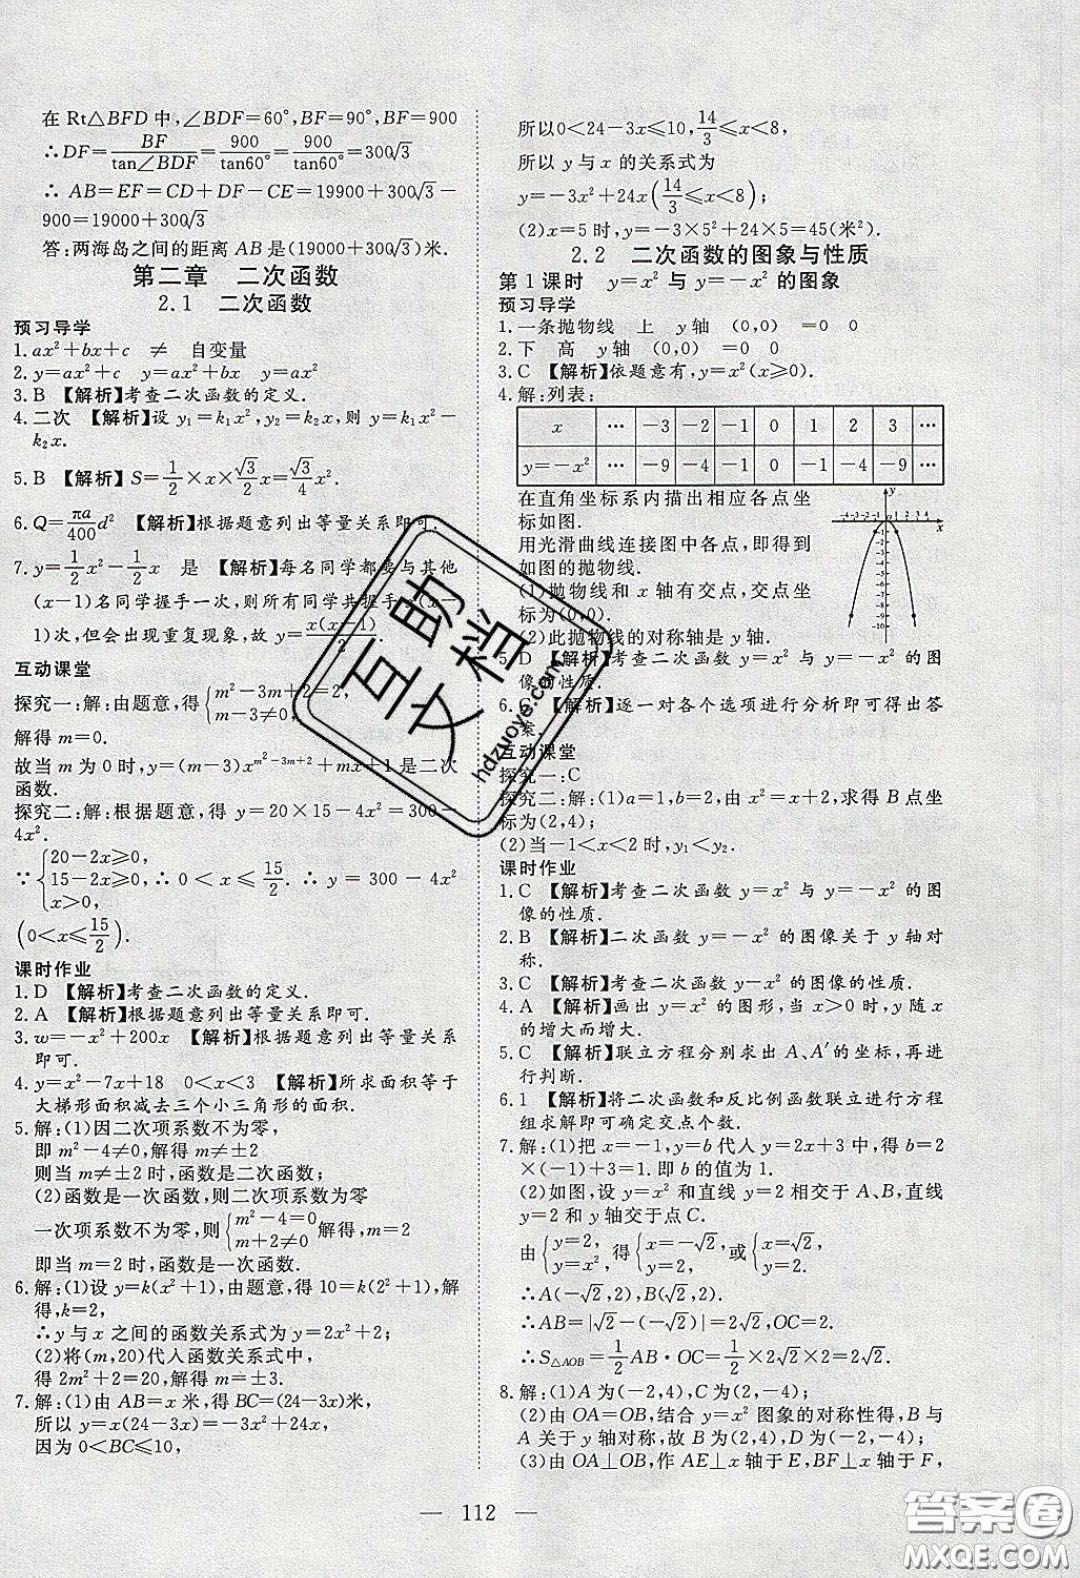 在 Rt△BFD 中,∠BDF=60°,BF=90°,BF=900
∴DF=BF/tan∠BDF=900/tan60°=900/tan60°=300√3
∴ AB=EF=CD+DF-CE=19900+300√3-
900=19000+300√3
答:两海岛之间的距离 AB 是(19000+300√3)米.
第二章 二次函数
2.1 二次函数
预习导学
1.ax²+bx+c ≠ 自变量
2.y=ax²+c y=ax²+bx y=ax²
3.B 【解析】考查二次函数的定义.
4.二次 【解析】设 y₁=k₁x²,y₂=k₂x,则 y=k₁x²-
k₂x.
5.B 【解析】S=1/2×x×√3/2x=√3/4x².
6.Q=πa/400d² 【解析】根据题意列出等量关系即可.
7.y=1/2x²-1/2x 是 【解析】每名同学都要与其他
(x-1)名同学握手一次,则所有同学共握手x(x-
1)次,但会出现重复现象,故 y=x(x-1)/2.
互动课堂
探究一:解:由题意,得{m²-3m+2=2, m-3≠0,
解得 m=0.
故当 m 为 0 时,y=(m-3)x^(m²-3m+2)+mx+1 是二次
函数.
探究二:解:根据题意,得 y=20×15-4x²=300-
4x².
∵{20-2x≥0, 15-2x≥0, x>0, ∴0<x≤15/2. ∴y=300-4x²
(0<x≤15/2).
课时作业
1.D 【解析】考查二次函数的定义.
2.A 【解析】根据题意列出等量关系即可.
3.w=-x²+200x 【解析】根据题意列出等量关系
即可.
4.y=x²-7x+18 0<x<3 【解析】所求面积等于
大梯形面积减去三个小三角形的面积.
5.解:(1)因二次项系数不为零,
即 m²-4≠0,解得 m≠±2
则当 m≠±2 时,函数是二次函数;
(2)函数是一次函数,则二次项系数为零
一次项系数不为零,则{m²-4=0 m+2≠0解得,m=2
即当 m=2 时,函数是一次函数.
6.解:(1)设 y=k(x²+1),由题意,得 10=k(2²+1),解
得,k=2,
∴y 与 x 之间的函数关系式为 y=2x²+2;
(2)将(m,20)代入函数关系式中,
得 2m²+2=20,解得 m=±3.
7.解:(1)由 AB=x 米,得 BC=(24-3x)米,
所以 y=x(24-3x)=-3x²+24x,
因为 0<BC≤10,
所以0<24-3x≤10,14/3≤x<8,
所以 y 与 x 的关系式为
y=-3x²+24x(14/3≤x<8);
(2)x=5 时,y=-3×5²+24×5=45(米²)
2.2 二次函数的图象与性质
第 1 课时 y=x² 与 y=-x² 的图象
预习导学
1.一条抛物线 上 y 轴 (0,0) =0 0
2.下 高 y 轴 (0,0) =0 0
3.C 【解析】依题意有,y=x²(x≥0).
4.解:列表:
x … -3 -2 -1 0 1 2 3 …
y=-x² … -9 -4 -1 0 -1 -4 -9 …
在直角坐标系内描出相应各点坐
标如图.
用光滑曲线连接图中各点,即得到
如图的抛物线.
(1)抛物线和 x 轴有交点,交点坐
标为(0,0).
(2)此抛物线的对称轴是 y 轴.
y
-4 -3 -2 -1 1 2 3 4 x
-1
-2
-3
-4
-5
-6
-7
-8
-9
-10
5.D 【解析】考查二次函数 y=x² 与 y=-x² 的图
像的性质.
6.C 【解析】逐一对各个选项进行分析即可得出答
案.
互动课堂
探究一:C
探究二:解:(1)a=1,b=2,由 x²=x+2,求得 B 点坐
标为(2,4);
(2)当-1<x<2 时,y₁<y₂.
课时作业
1.C 【解析】考查二次函数 y=x² 与 y=-x² 的图
像的性质.
2.B 【解析】二次函数 y=-x² 的图像关于 y 轴对
称.
3.C 【解析】考查二次函数 y-x² 的图像的性质.
4.A 【解析】画出 y=x² 的图形,当 x>0 时,y 随 x
的增大而增大.
5.C 【解析】联立方程分别求出 A、A′的坐标,再进
行判断.
6.1 【解析】将二次函数和反比例函数联立进行方程
组求解即可确定交点个数.
7.解:(1)把 x=-1,y=b 代入 y=2x+3 中,得 b=2
×(-1)+3=1.即 b 的值为 1.
(2)如图,设 y=x² 和直线 y=2 相交于 A、B,直线
y=2 和 y 轴交于点 C.
由{y=2, y=x²,得{x=-√2, y=2,或{x=√2, y=2.
∴A(-√2,2),B(√2,2).
∴AB=|√2-(-√2)|=2√2,OC=2.
∴S△AOB=1/2AB·OC=1/2×2√2×2=2√2.
8.解:(1)A 为(-2,4),C 为(2,-4);
(2)由 OA=OB,结合 y=x² 图象的对称性得,B 与
A 关于 y 轴对称,故 B 为(2,4),D 为(-2,-4);
(3)由 OA⊥OB,作 AE⊥x 轴于 E,BF⊥x 轴于 F,
— 112 —
互助文档
hdzuoye.com
答案圈
MXQE.COM